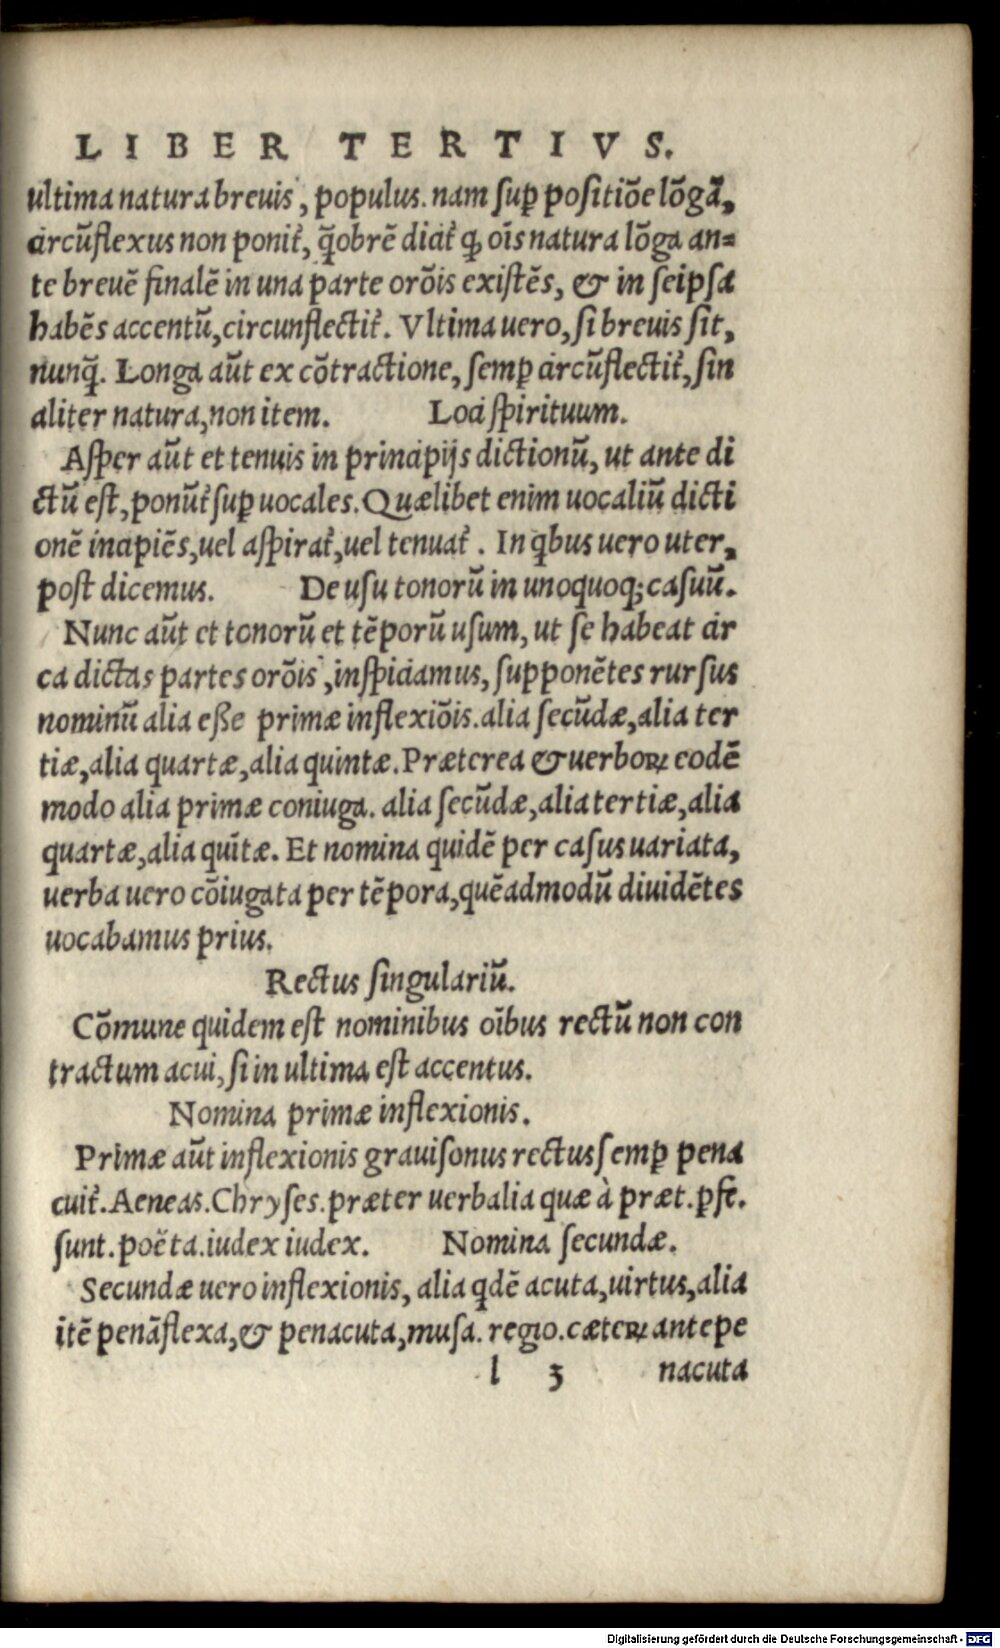 LIBER TERTIVS.
ultima natura breuis, populus. nam suꝑ positiōe lōgā,
circūflexus non ponit᷑, q̄obrē dicit᷑ ꝙ oīs natura lōga an=
te breuē finalē in una parte orōis existēs, & in seipsa
habēs accentū, circunflectit᷑. Vltima uero, si breuis sit,
nunq̄. Longa aūt ex cōtractione, semꝑ circūflectit᷑, sin
aliter natura, non item. Loci spirituum.
Asper aūt et tenuis in principijs dictionū, ut ante di
ctū est, ponūt᷑ suꝑ uocales. Quælibet enim uocaliū dicti
onē incipiēs, uel aspirat᷑, uel tenuat᷑. In qͥbus uero uter,
post dicemus. De usu tonorū in unoquoq; casuū.
Nunc aūt et tonorū et tēporū usum, ut se habeat cir
ca dictas partes orōis, inspiciamus, supponētes rursus
nominū alia eße primæ inflexiōis. alia secūdæ, alia ter
tiæ, alia quartæ, alia quintæ. Præterea & uerboꝝ eodē
modo alia primæ coniuga. alia secūdæ, alia tertiæ, alia
quartæ, alia quītæ. Et nomina quidē per casus uariata,
uerba uero cōiugata per tēpora, quēadmodū diuidētes
uocabamus prius.
Rectus singulariū.
Cōmune quidem est nominibus oībus rectū non con
tractum acui, si in ultima est accentus.
Nomina primæ inflexionis.
Primæ aūt inflexionis grauisonus rectus semꝑ pena
cuit᷑. Aeneas. Chryses. præter uerbalia quæ à præt. ꝑfe.
sunt. poëta. iudex iudex. Nomina secundæ.
Secundæ uero inflexionis, alia qͥdē acuta, uirtus, alia
itē penāflexa, & penacuta, musa. regio. cæteꝝ antepe
l 3 nacuta
Digitalisierung gefördert durch die Deutsche Forschungsgemeinschaft - DFG